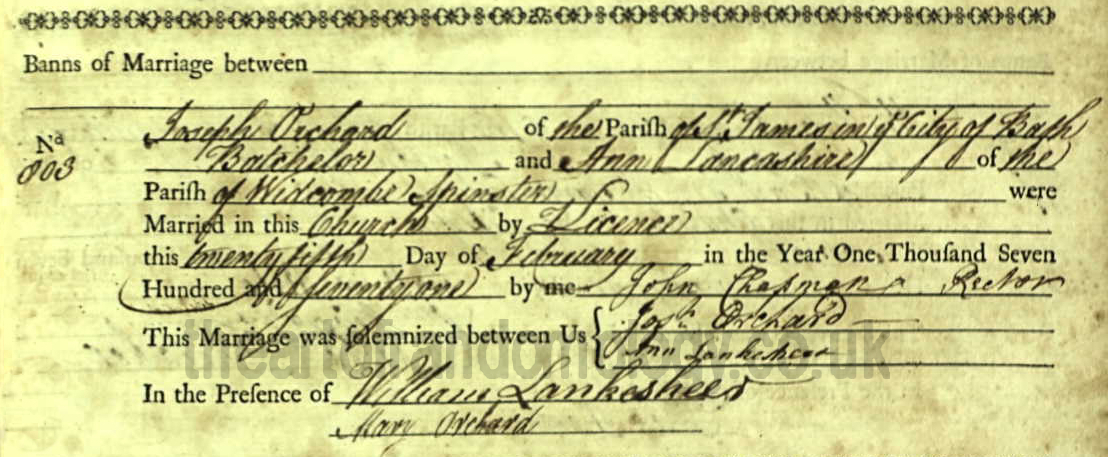 Banns of Marriage between
Joseph Orchard of the Pariſh of St. James in ye City of Bath
No. 803
Batchelor and Ann Lancashire of the
Pariſh of Widcombe Spinster were
Married in this Church by Licence
this twenty fifth Day of February in the Year One Thouſand Seven
Hundred and Seventy one by me John Chapman Rector
This Marriage was ſolemnized between Us { Josh. Orchard
Ann Lankesheer
In the Preſence of William Lankesheer
Mary Orchard